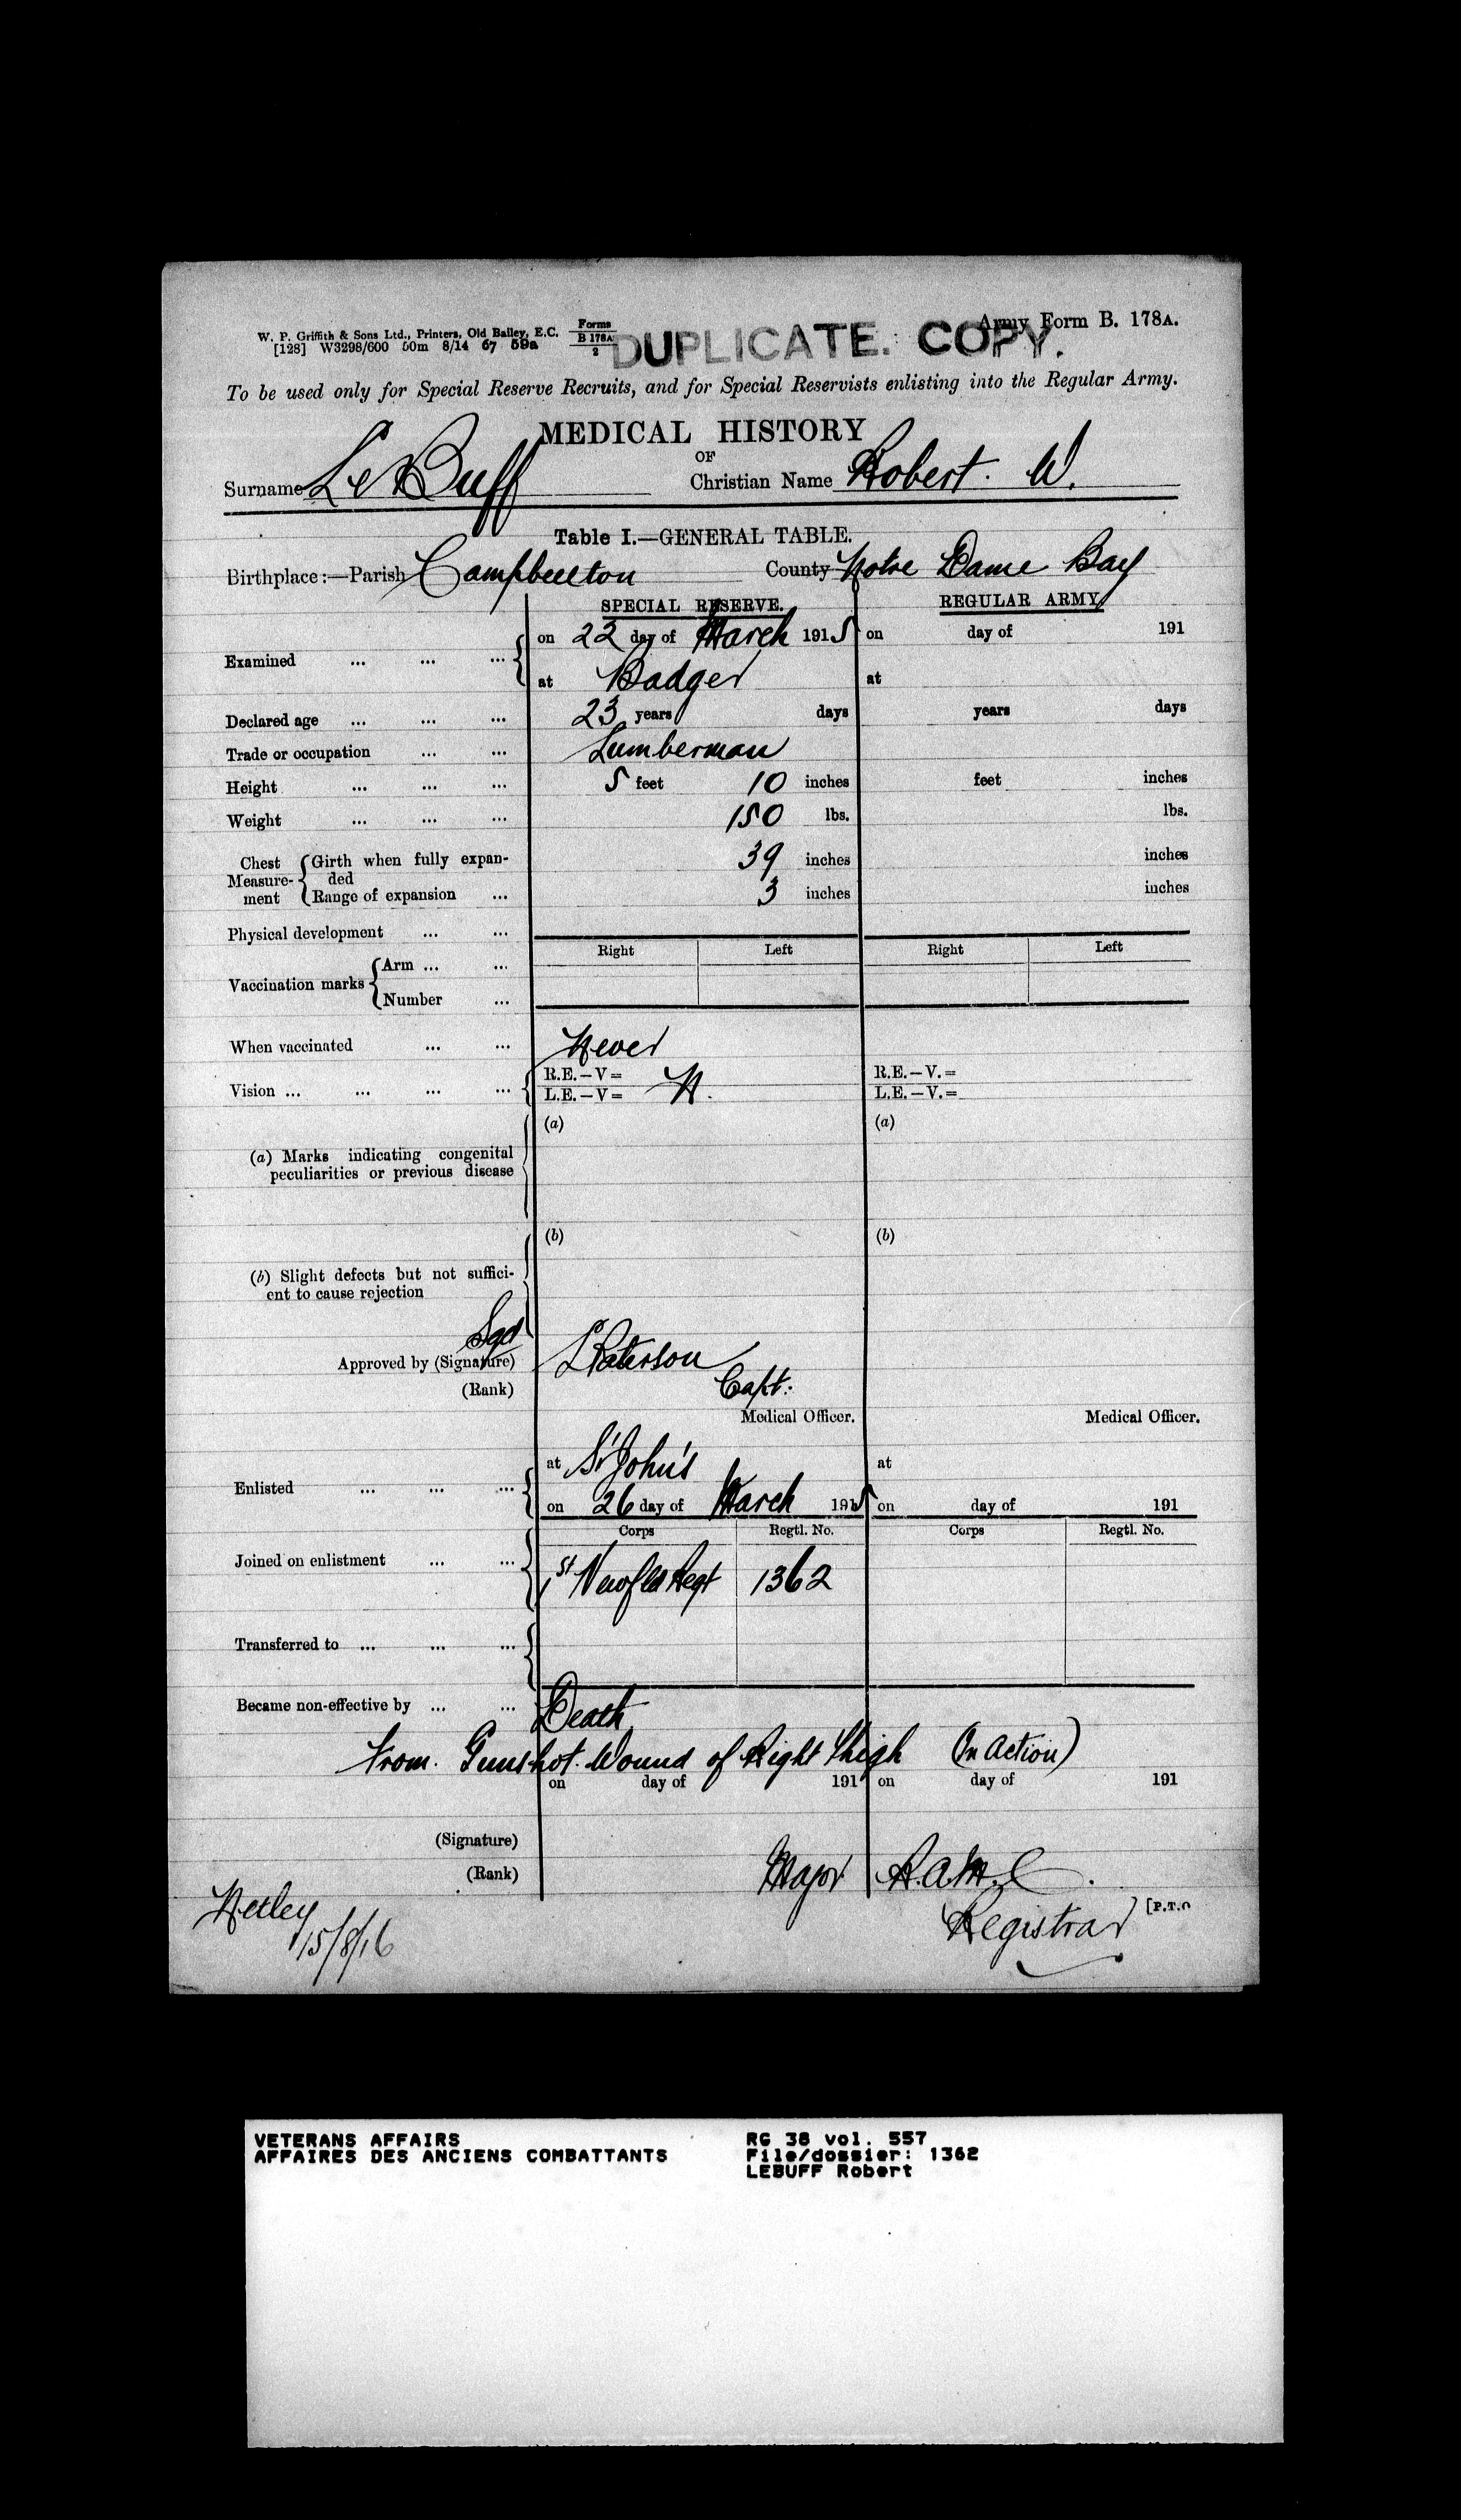 W. P. Griffith & Sons Ltd., Printers, Old Bailey, E.C.
[128] W3298/600 50m 8/14 67 59a
Forms
B 178A
2
DUPLICATE. COPY.
Army Form B. 178A.
To be used only for Special Reserve Recruits, and for Special Reservists enlisting into the Regular Army.
MEDICAL HISTORY
OF
Surname LeBuff Christian Name Robert. W.
Table I.—GENERAL TABLE.
Birthplace:—Parish Campbellton County Notre Dame Bay
SPECIAL RESERVE. REGULAR ARMY
Examined ... ... ... on 22 day of March 1915 on day of 191
at Badger at
Declared age ... ... ... 23 years days years days
Trade or occupation ... ... Lumberman
Height ... ... ... 5 feet 10 inches feet inches
Weight ... ... ... 150 lbs. lbs.
Chest Measurement Girth when fully expanded 39 inches inches
Range of expansion ... 3 inches inches
Physical development ... ...
Right Left Right Left
Vaccination marks Arm ... ...
Number ...
When vaccinated ... ... Never
Vision ... ... ... ... R.E.—V= N. R.E.—V.=
L.E.—V= L.E.—V.=
(a) (a)
(a) Marks indicating congenital
peculiarities or previous disease
(b) (b)
(b) Slight defects but not suffici-
ent to cause rejection
Sgd
Approved by (Signature) Paterson
(Rank) Capt.
Medical Officer. Medical Officer.
Enlisted ... ... ... at St John's at
on 26 day of March 1915 on day of 191
Corps Regtl. No. Corps Regtl. No.
Joined on enlistment ... ... 1st Newfld Regt 1362
Transferred to ... ... ...
Became non-effective by ... ... Death
from. Gunshot. Wound of Right Thigh (In Action)
on day of 191 on day of 191
(Signature)
(Rank) Major R.A.M.C.
Registrar [P.T.O
Netley
15/8/16
VETERANS AFFAIRS
AFFAIRES DES ANCIENS COMBATTANTS
RG 38 vol. 557
File/dossier: 1362
LEBUFF Robert